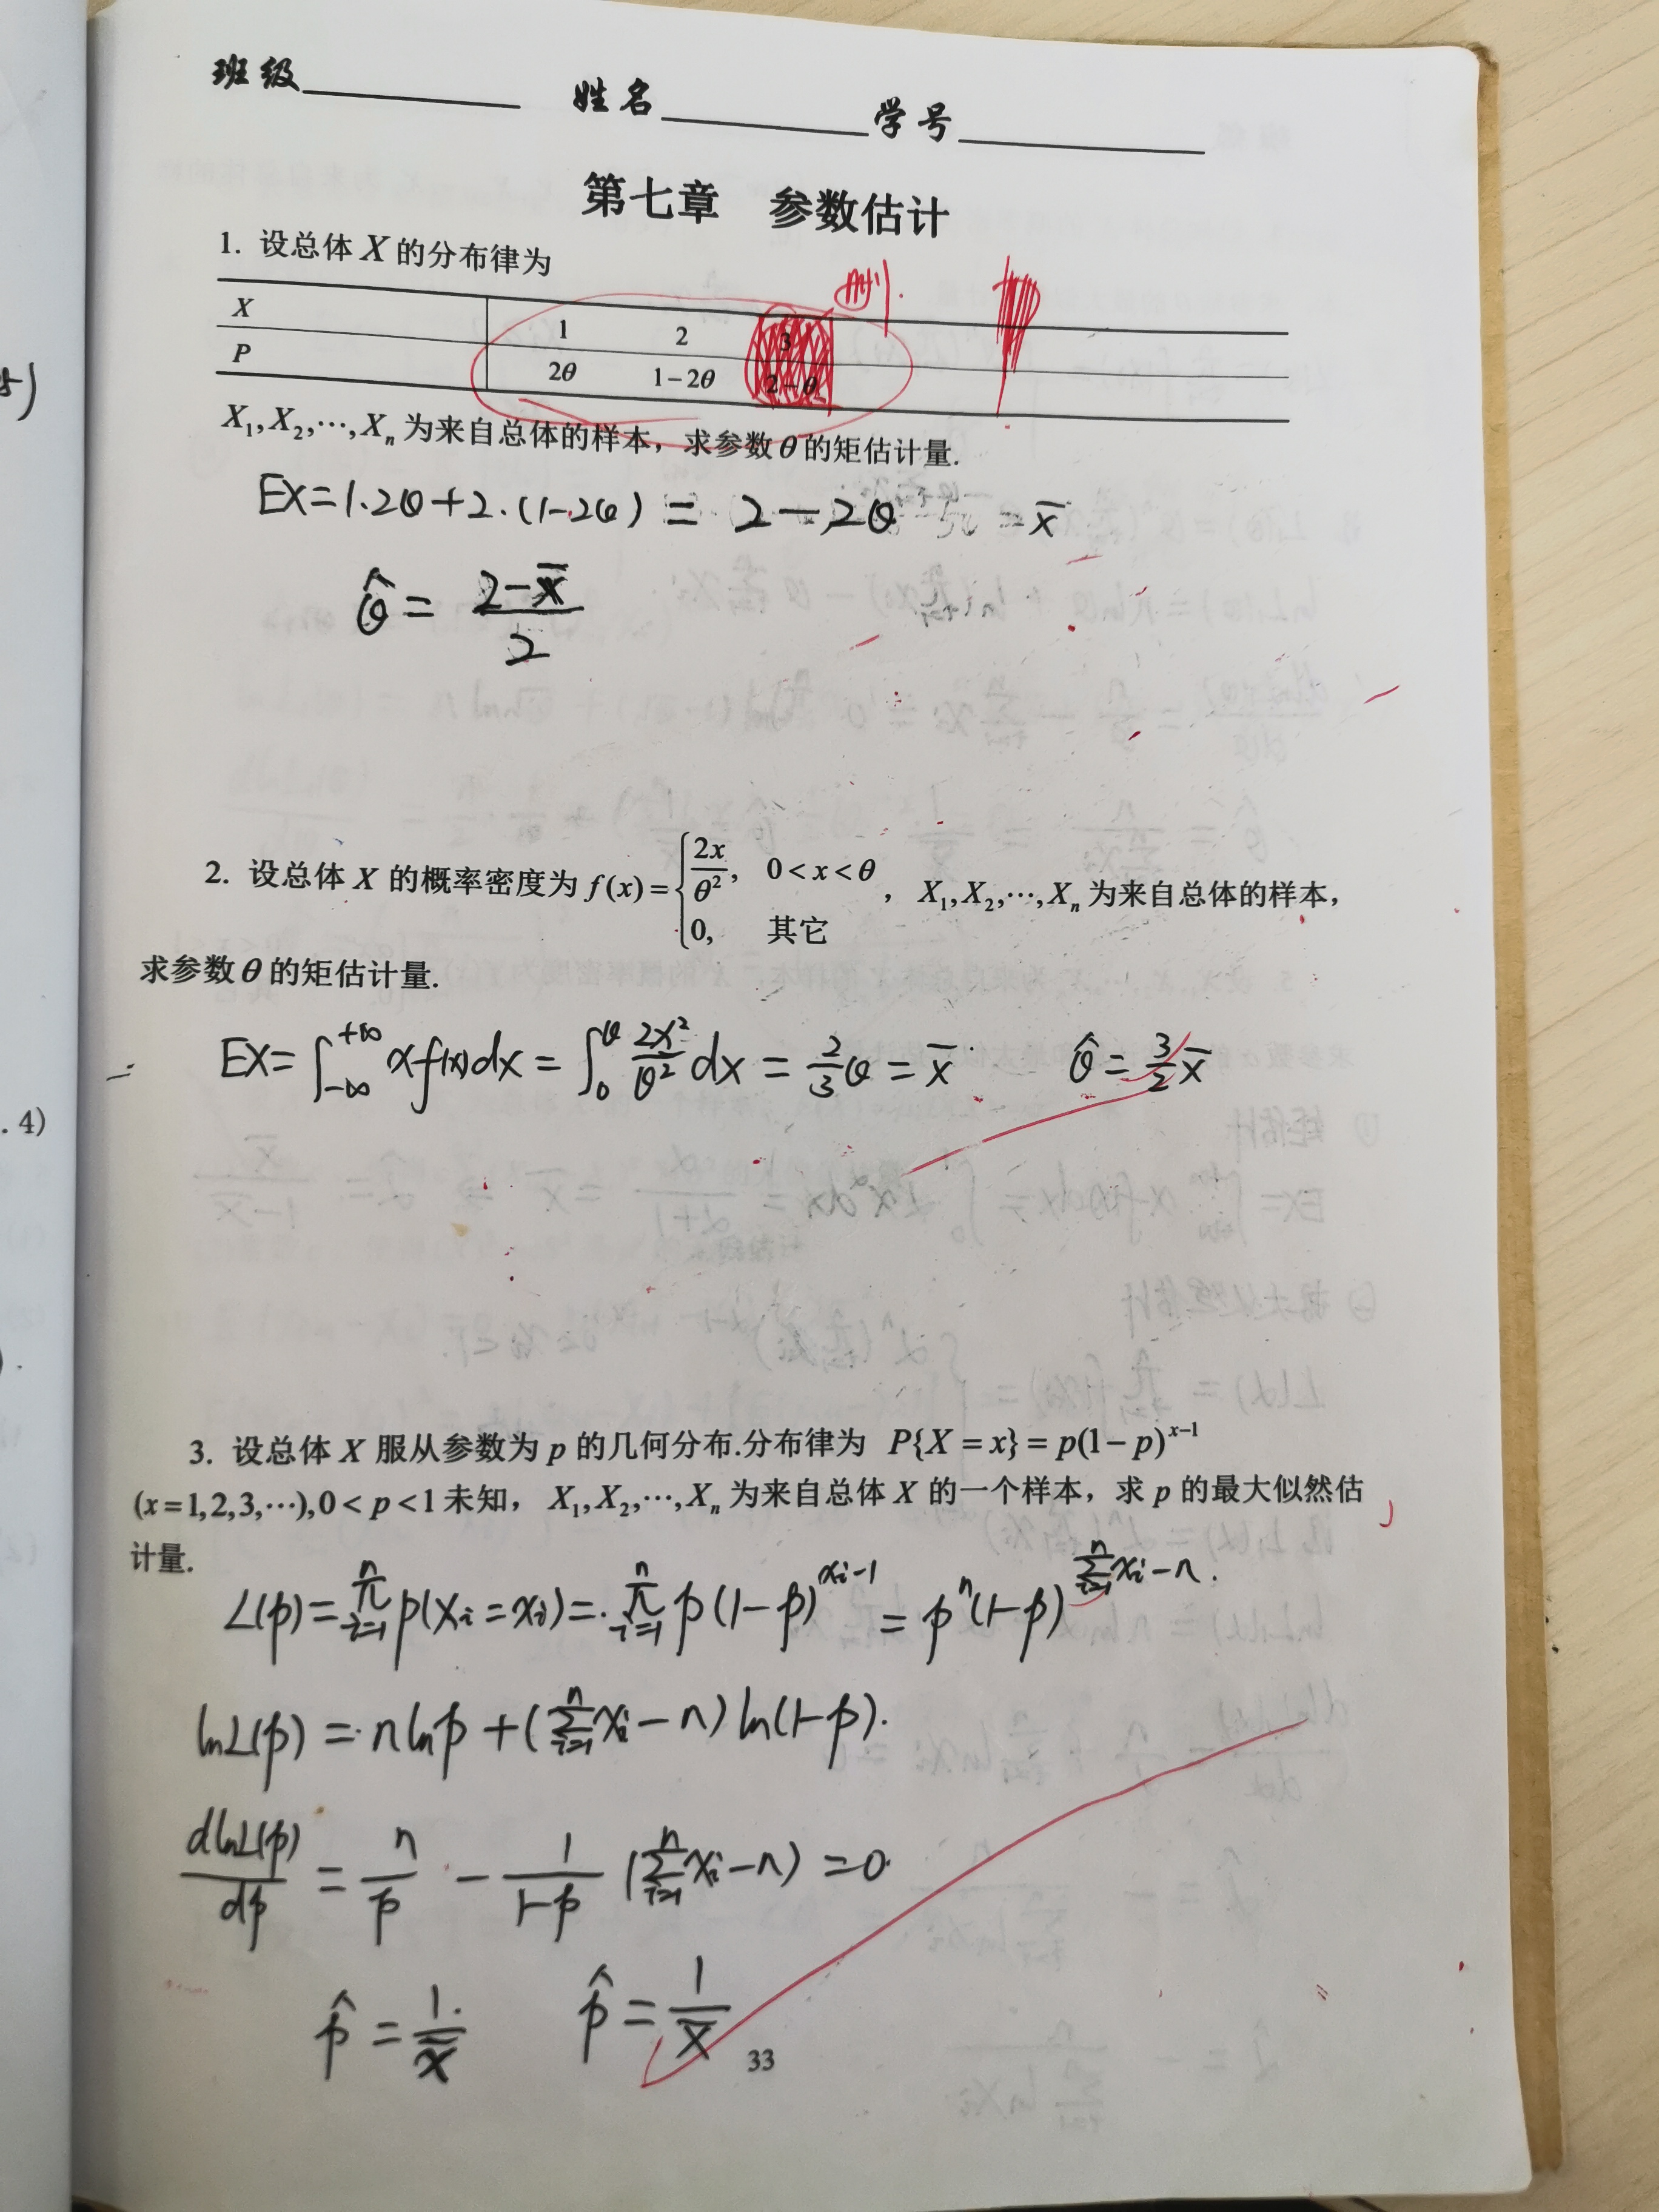 班级 姓名 学号
第七章 参数估计
1. 设总体 X 的分布律为
X 1 2 3
P 2θ 1−2θ 2−θ
X₁,X₂,⋯,Xₙ 为来自总体的样本，求参数θ的矩估计量.
EX=1·2θ+2·(1-2θ) = 2-2θ = x̄
θ̂ = (2-x̄)/2
2. 设总体 X 的概率密度为 f(x)={2x/θ², 0<x<θ; 0, 其它 ，X₁,X₂,⋯,Xₙ 为来自总体的样本，
求参数θ的矩估计量.
EX=∫_{-∞}^{+∞} xf(x)dx = ∫_0^θ 2x²/θ² dx = 2/3 θ = x̄ θ̂ = 3/2 x̄
3. 设总体 X 服从参数为 p 的几何分布.分布律为 P{X=x}=p(1−p)^{x−1}
(x=1,2,3,⋯),0<p<1未知，X₁,X₂,⋯,Xₙ 为来自总体 X 的一个样本，求 p 的最大似然估
计量.
L(p)=∏_{i=1}^n p(Xi=xi)=∏_{i=1}^n p(1-p)^{xi-1} = p^n(1-p)^{∑_{i=1}^n xi-n}.
lnL(p) = nlnp+(∑_{i=1}^n xi-n)ln(1-p).
dlnL(p)/dp = n/p - 1/(1-p) (∑_{i=1}^n xi-n) =0
p̂ = 1/x̄ p̂ = 1/X̄
33
5)
.4)